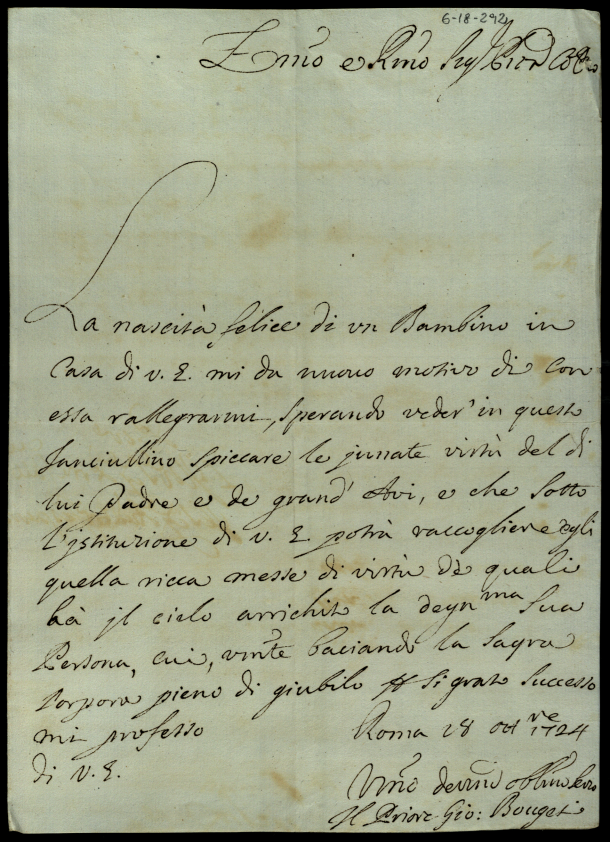 6-18-292
Emo e Rmo Sig
La nascita felice di un Bambino in
Casa di V. E. mi da nuovo motivo di con
essa rallegrarmi, sperando veder' in questo
fanciullino spiccare le innate virtù del di
lui Padre e de grand' Avi, e che sotto
l'istituzione di V. E. potrà raccogliere egli
quella ricca messe di virtù de quali
hà jl cielo arrichito la degnma Sua
Persona, cui, baciando la sagra
Porpora pieno di giubilo si grato successo
mi professo
Roma 28 1724
di V. E.
Il Priore Gio: Bouget